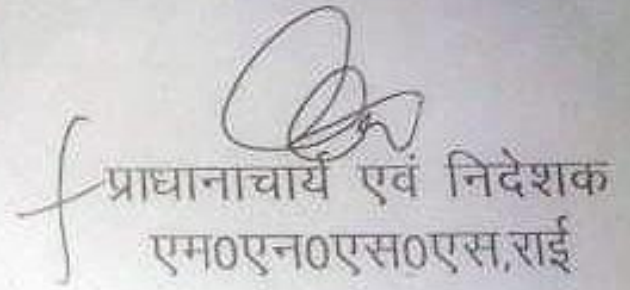 प्राधानाचार्य एवं निदेशक
एम0एन0एस0एस,राई